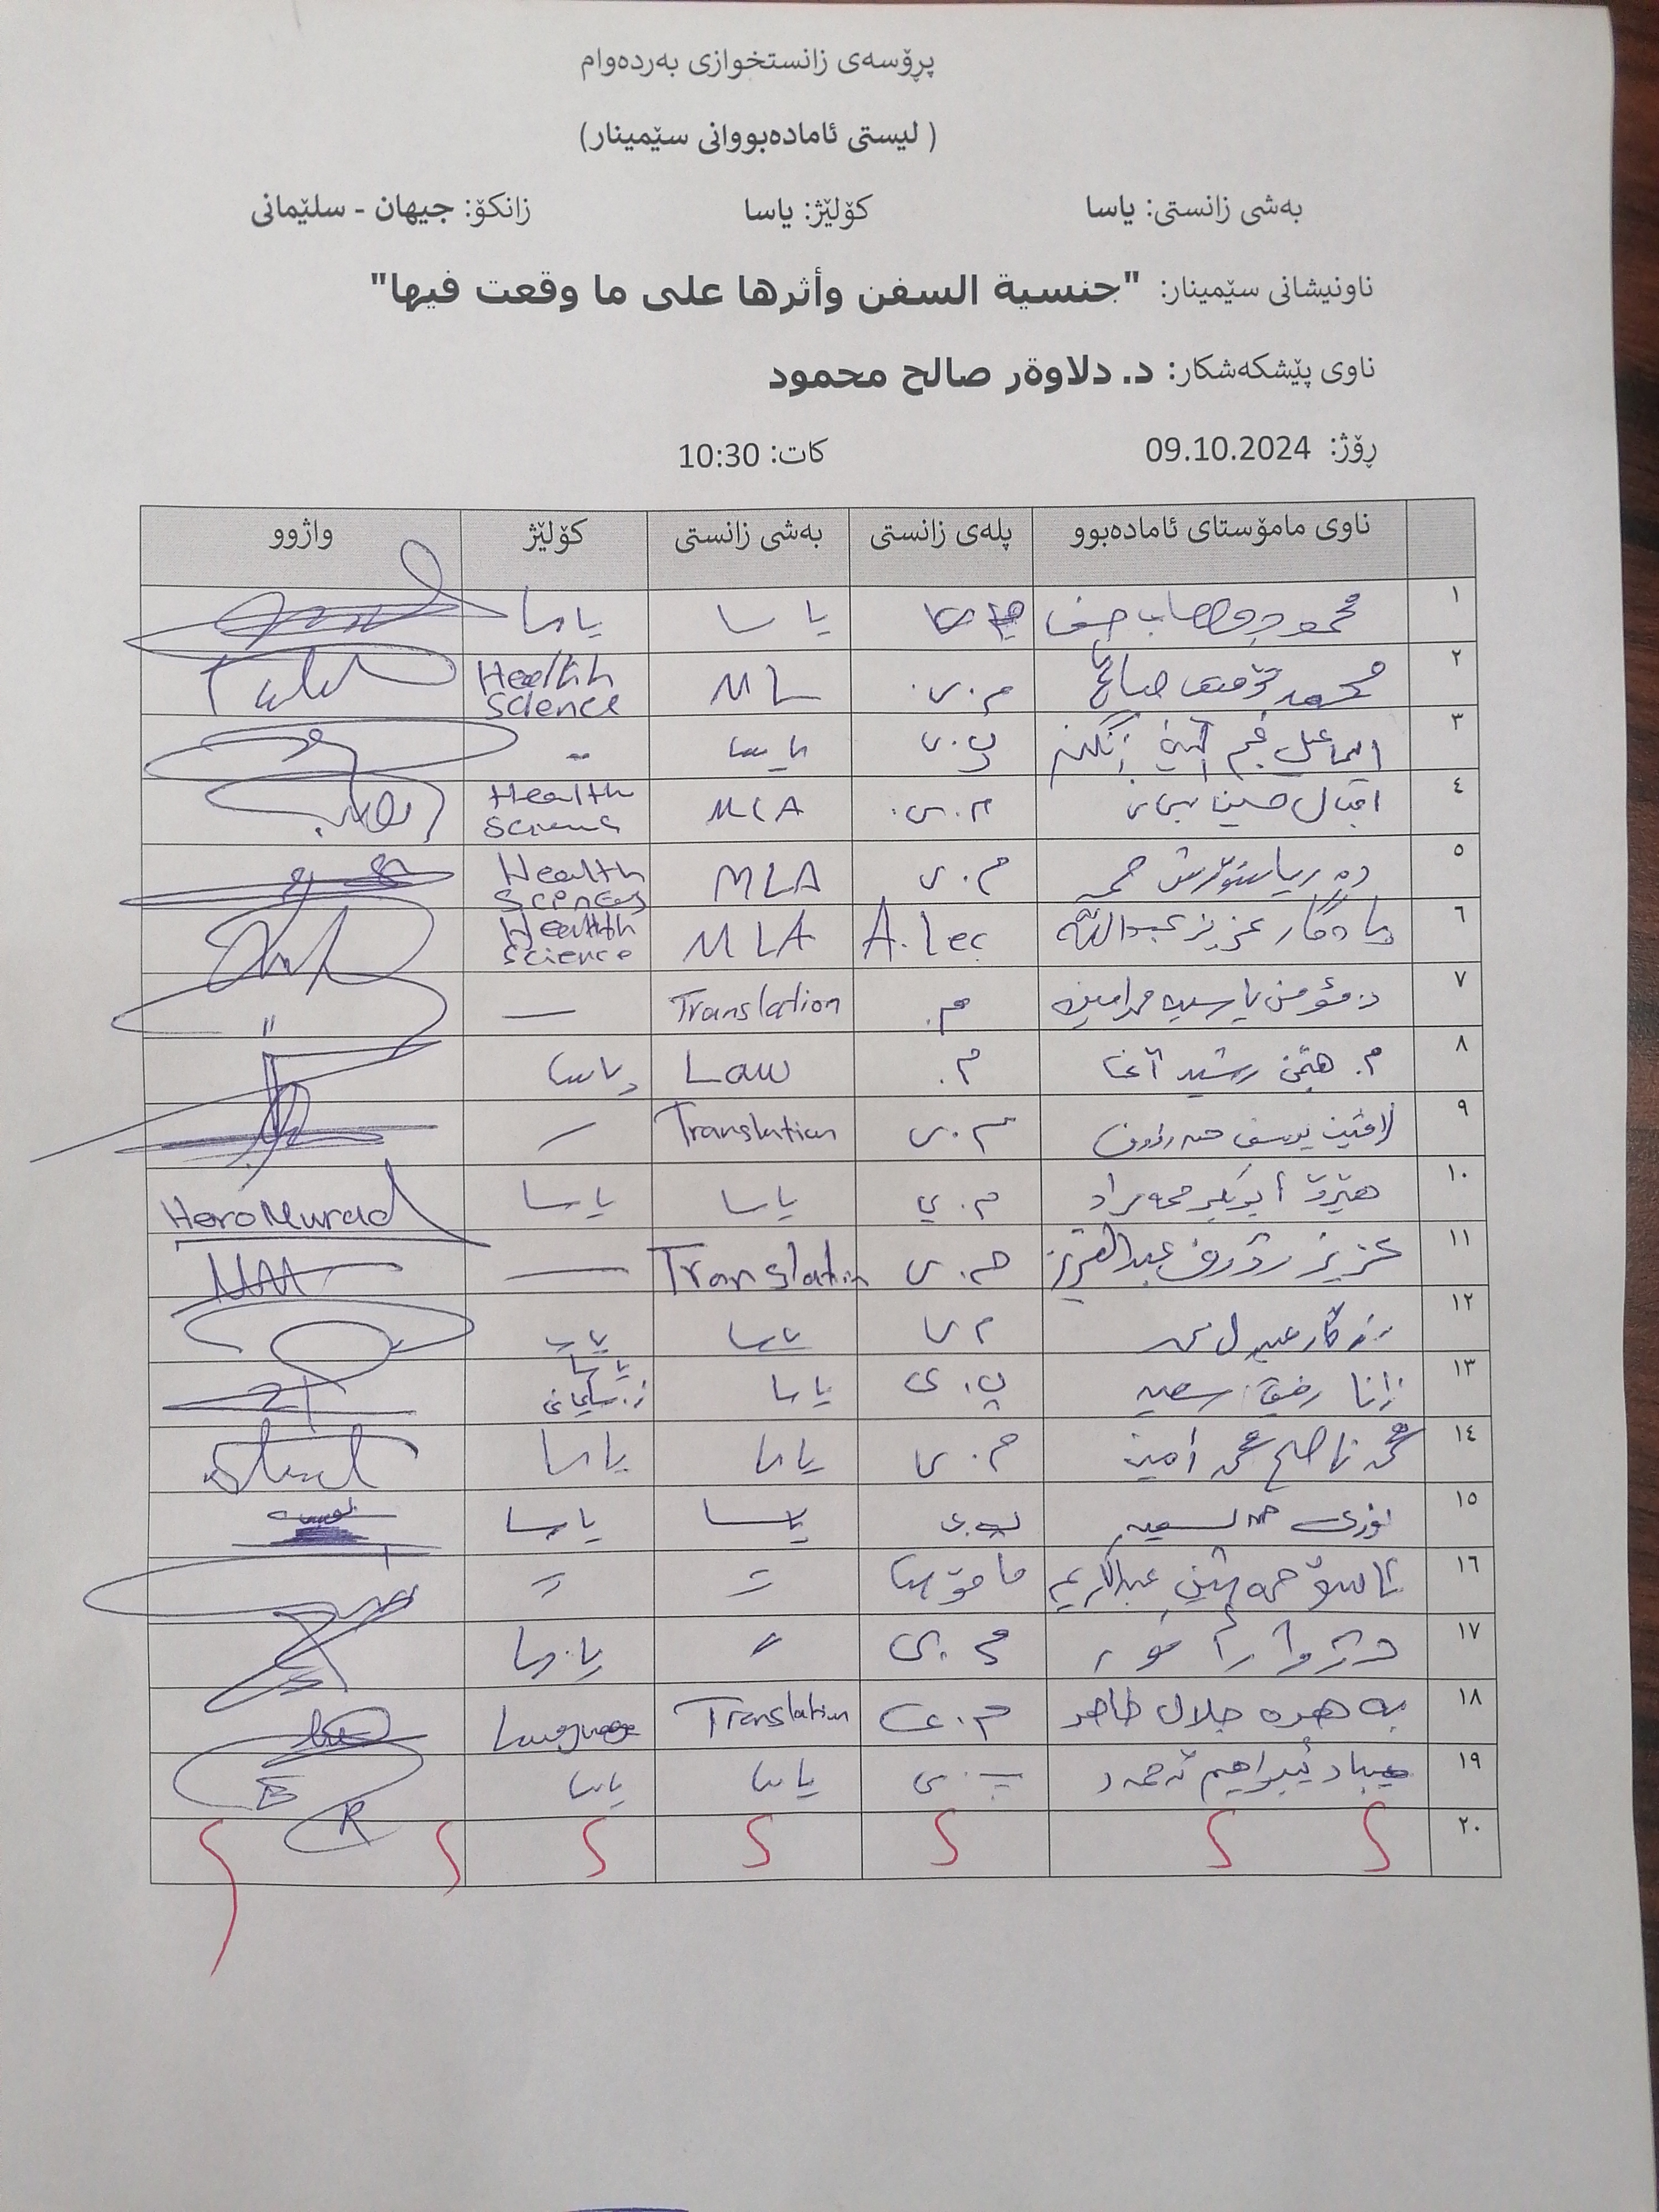 پڕۆسەی زانستخوازی بەردەوام
( لیستی ئامادەبووانی سێمینار)
بەشی زانستی: یاسا کۆلێژ: یاسا زانکۆ: جیهان - سلێمانی
ناونیشانی سێمینار: "جنسية السفن وأثرها على ما وقعت فيها"
ناوی پێشکەشکار: د. دلاوةر صالح محمود
ڕۆژ: 09.10.2024 کات: 10:30
ناوی مامۆستای ئامادەبوو پلەی زانستی بەشی زانستی کۆلێژ واژوو
١ یاسا یاسا
٢ محمد توفیق صالح م.ی. ML Health Science
٣ پ.ی یاسا -
٤ اقبال حسین م.ی. MLA Health
٥ م.ی MLA Health Sciences
٦ یادگار عزیز عبدالله A.lec MLA Health Science
٧ د.مؤمن یاسین محمدامین م. Translation —
٨ م. هێمن رشید آغا م. Law یاسا
٩ یوسف م.ی Translation —
١٠ هێرۆ ابوبکر محمد مراد م.ی یاسا یاسا Hero Murad
١١ عزیز رؤوف عبدالعزیز م.ی Translation —
١٢ م ی یاسا
١٣ زانا رفیق سعید پ.ی یاسا یاسا ز.سلیمانی
١٤ محمد ناصح محمد امین م.ی یاسا یاسا
١٥ نوری حمه سعید پ.ی یاسا یاسا
١٦ ئاسۆ عبدالکریم مامۆستا = =
١٧ م.ی 〃 یاسا
١٨ بەهرە جلال طاهر م.ی Translation Language
١٩ ئیبراهیم ئەحمەد پ.ی یاسا یاسا
٢٠